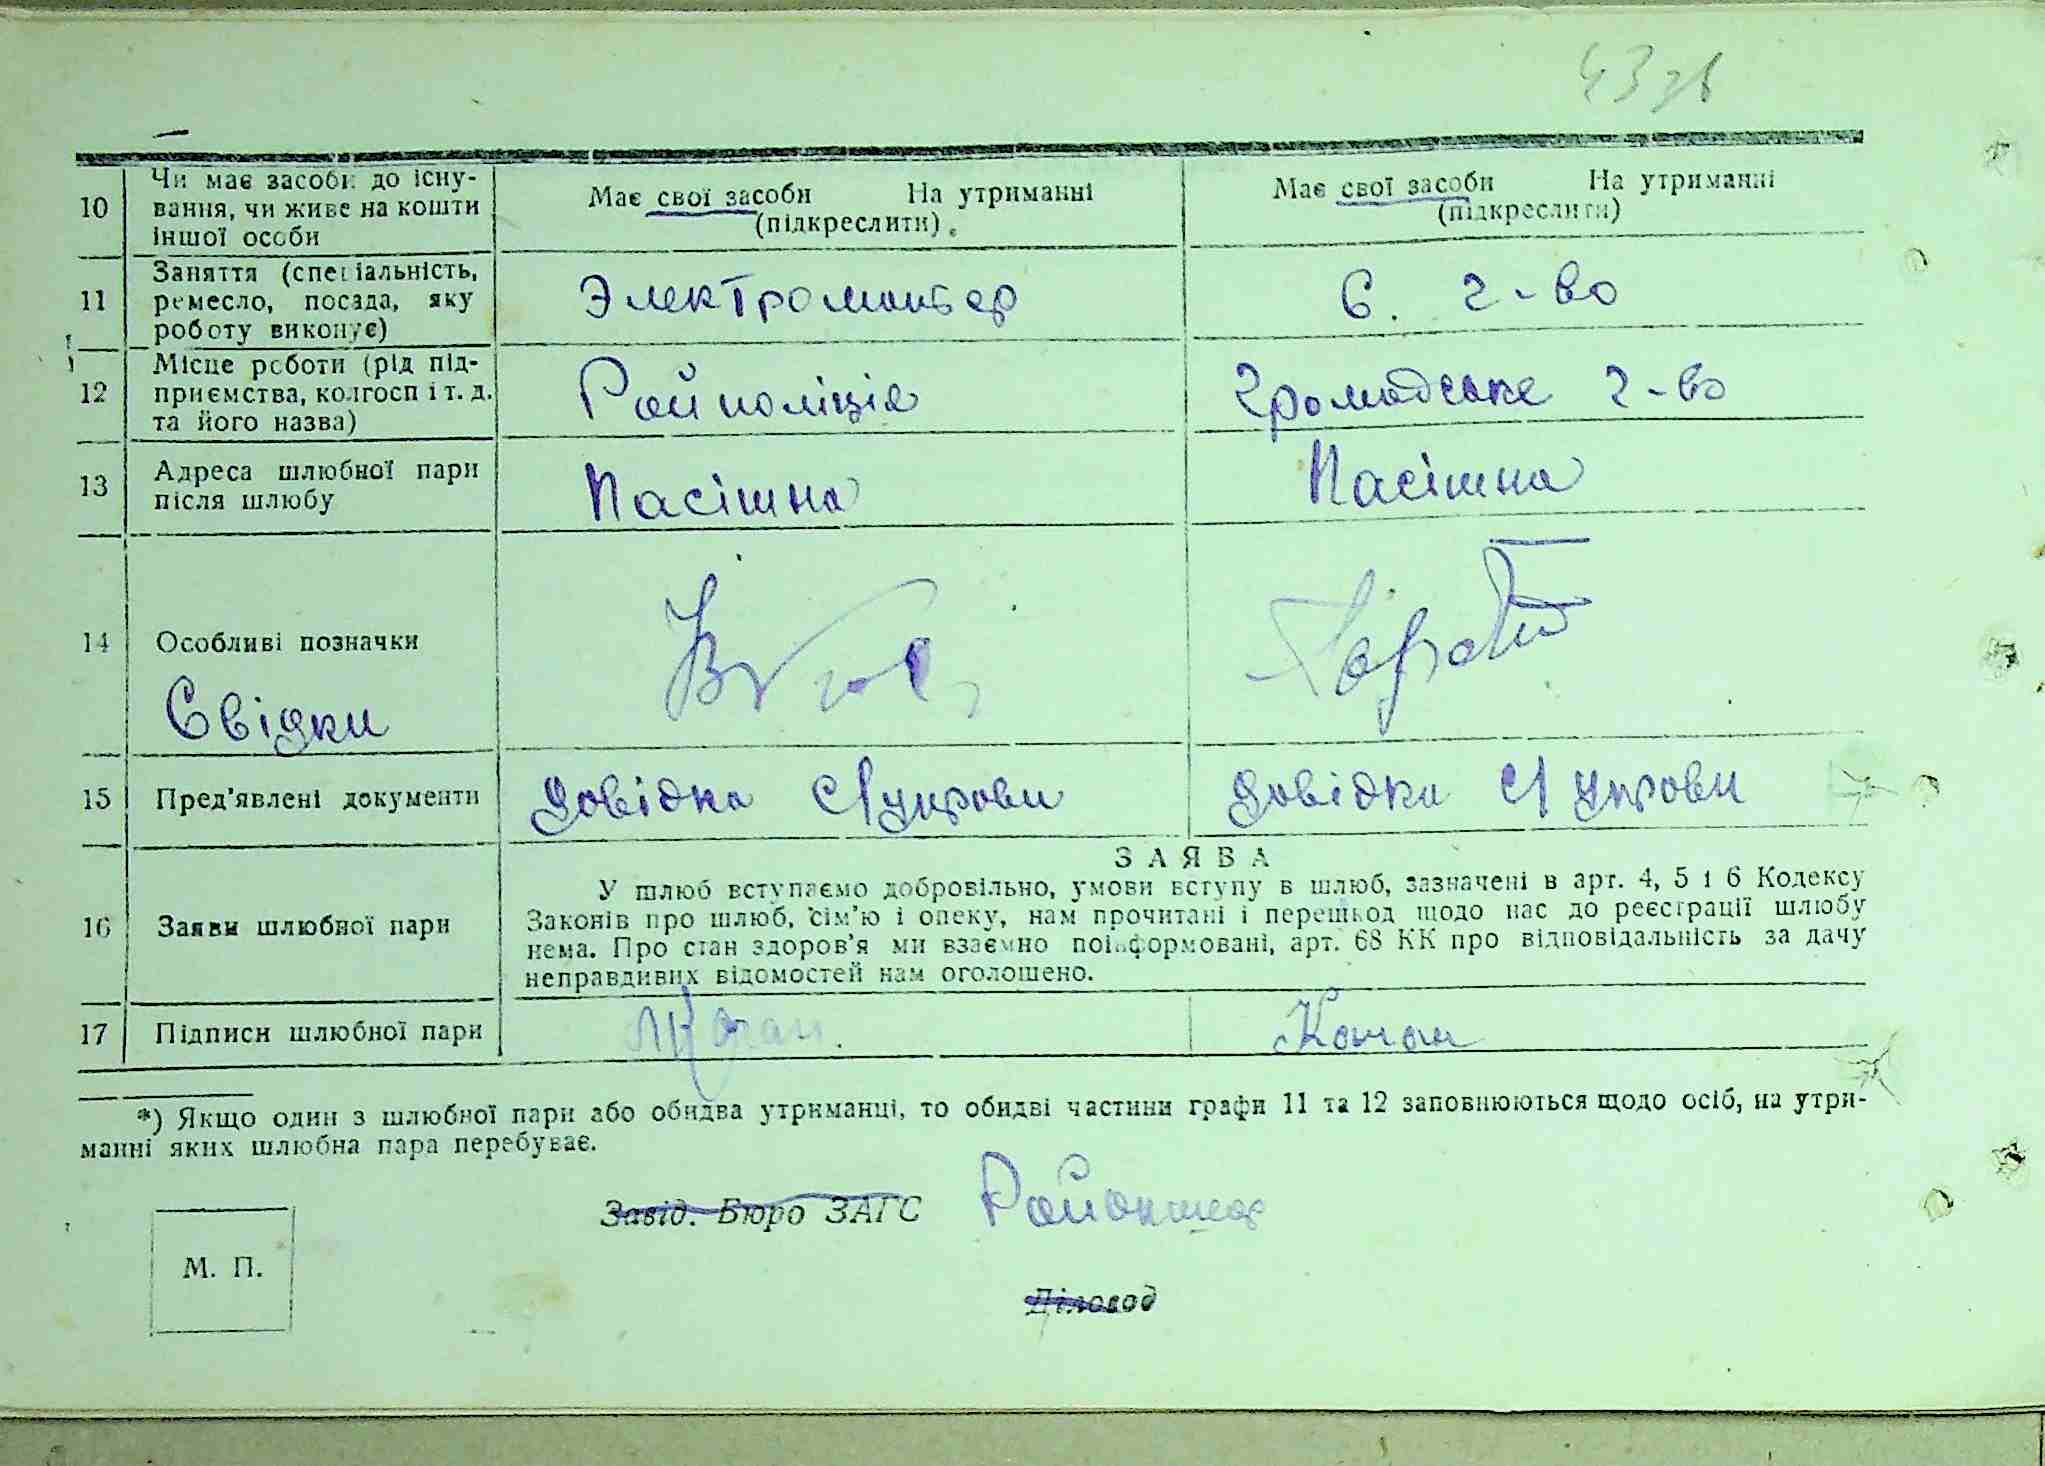 43зв
10 Чи має засоби до існу-
вання, чи живе на кошти
іншої особи
Має свої засоби На утриманні
(підкреслити)
Має свої засоби На утриманні
(підкреслити)
11 Заняття (спеціальність,
ремесло, посада, яку
роботу виконує)
Электромонтер
С. г-во
12 Місце роботи (рід під-
приємства, колгосп і т. д.
та його назва)
Райполіція
Громадське г-во
13 Адреса шлюбної пари
після шлюбу
Пасішна
Пасішна
14 Особливі позначки
Свідки
15 Пред'явлені документи
Довідка С/управи
Довідка С/управи
16 Заяви шлюбної пари
ЗАЯВА
У шлюб вступаємо добровільно, умови вступу в шлюб, зазначені в арт. 4, 5 і 6 Кодексу
Законів про шлюб, сім'ю і опеку, нам прочитані і перешкод щодо нас до реєстрації шлюбу
нема. Про стан здоров'я ми взаємно поінформовані, арт. 68 КК про відповідальність за дачу
неправдивих відомостей нам оголошено.
17 Підписи шлюбної пари
*) Якщо один з шлюбної пари або обидва утриманці, то обидві частини графи 11 та 12 заповнюються щодо осіб, на утри-
манні яких шлюбна пара перебуває.
Завід. Бюро ЗАГС
М. П.
Діловод